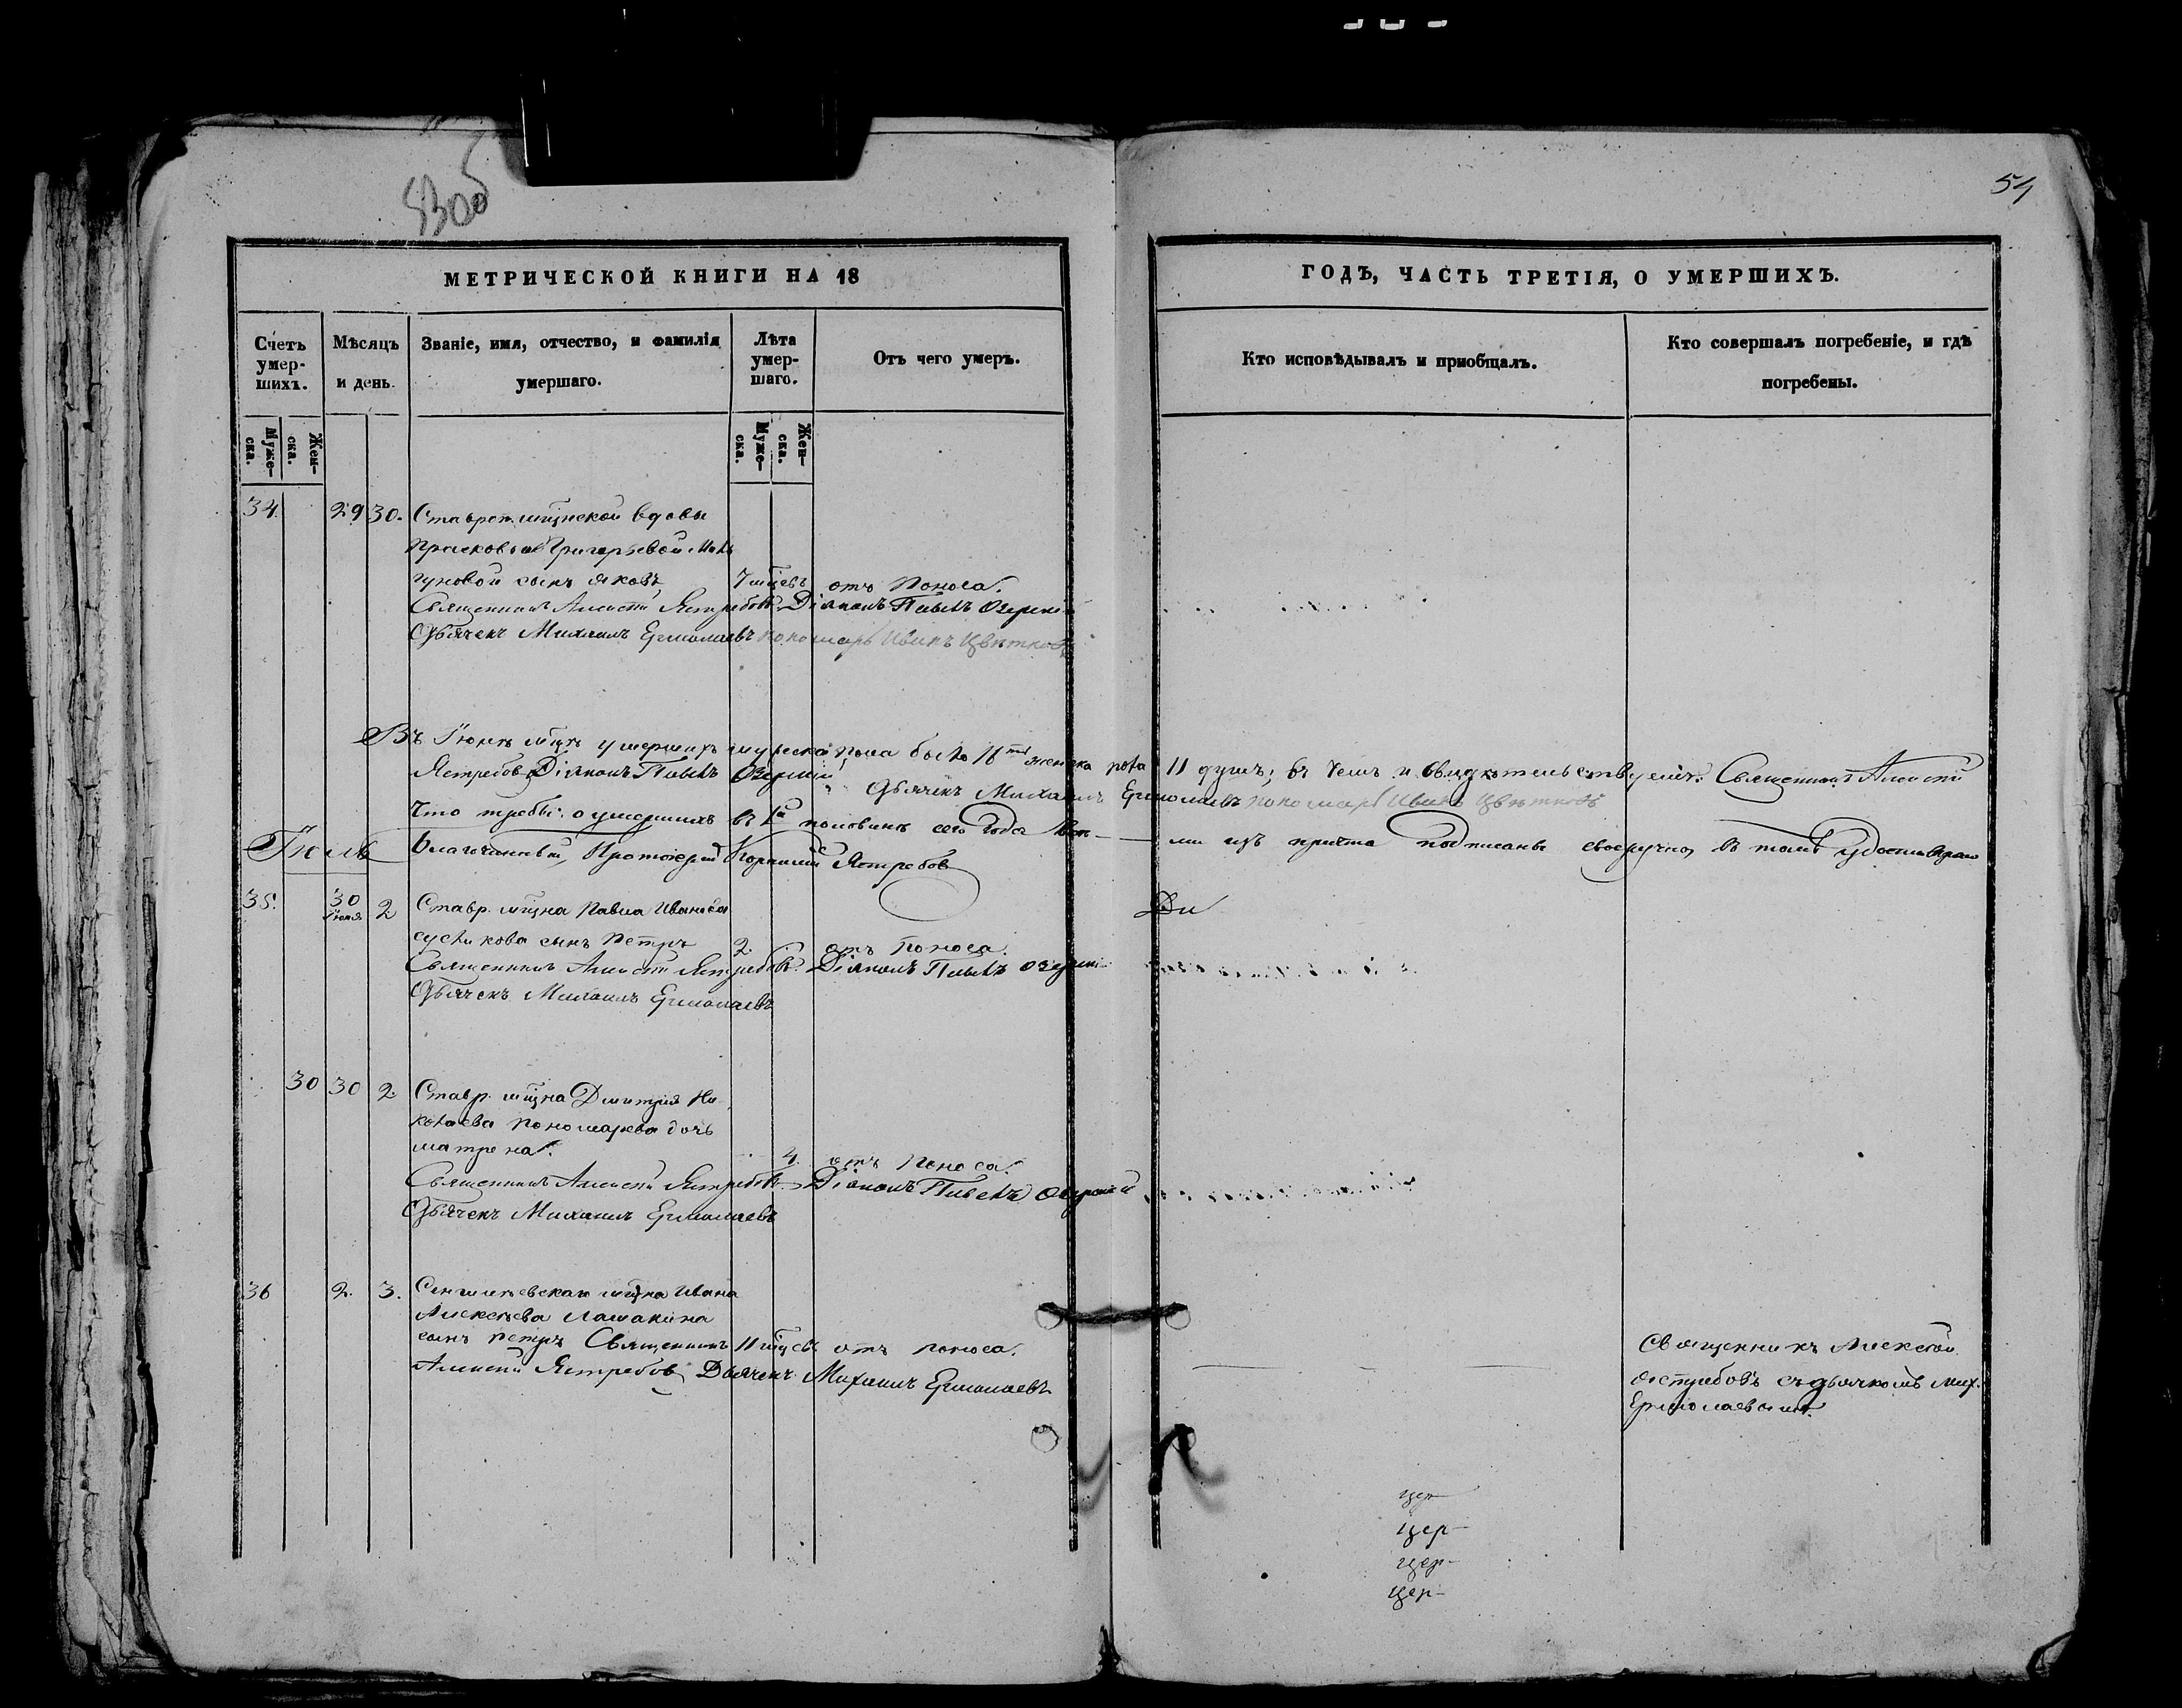 53об
54
МЕТРИЧЕСКОЙ КНИГИ НА 18
ГОДЪ, ЧАСТЬ ТРЕТІЯ, О УМЕРШИХЪ.
Счетъ умер-шихъ.
Мѣсяцъ и день.
Званіе, имя, отчество, и фамилія умершаго.
Лѣта умер-шаго.
Отъ чего умеръ.
Кто исповѣдывалъ и приобщалъ.
Кто совершалъ погребеніе, и гдѣ погребены.
Муже-ска.
Жен-ска.
Муже-ска.
Жен-ска.
34 29 30. Ставроп. мѣщнской вдовы
Прасковьи Григорьевой
гуновой сынъ Яковъ 7 мцевъ отъ поноса.
Священникъ Алексѣй Ястребовъ. Діаконъ Павелъ Озерскій
Дьячекъ Михаилъ Ермолаевъ пономарь Иванъ Цвѣтковъ
Въ Іюнѣ мцѣ умершихъ мужеска пола было женска пола 11 душъ; въ чемъ и свидѣтельствуемъ: Священникъ Алексѣй
Ястребовъ Діаконъ Павелъ Озерскій Дьячекъ Михаилъ Ермолаевъ пономарь Иванъ Цвѣтковъ
Что требы: о умершихъ въ 1й половинѣ сего года ми изъ причта подписаны своеручно, въ томъ удостовѣряю
Іюль Благочинный, Протоіерей Ястребовъ
35. 30 Іюня 2 Ставр. мщна Павла Иванова
сынъ Петръ 2. отъ поноса.
Священникъ Алексѣй Ястребовъ. Діаконъ Павелъ Озерскій
Дьячекъ Михаилъ Ермолаевъ
30 30 2 Ставр. мщна Дмитрія Ни
колаева Пономарева дочь
Матрена. 4. отъ поноса.
Священникъ Алексѣй Ястребовъ. Діаконъ Павелъ Озерскій
Дьячекъ Михаилъ Ермолаевъ
36 2. 3. Сенгилѣевскаго мщна Ивана
Алексѣева Лашакина
сынъ Петръ Священникъ 11 мцевъ отъ поноса.
Алексѣй Ястребовъ, Дьячекъ Михаилъ Ермолаевъ
Священникъ Алексѣй
Ястребовъ съ дьячкомъ Мих.
Ермолаевымъ.
цер-
цер-
цер-
цер-